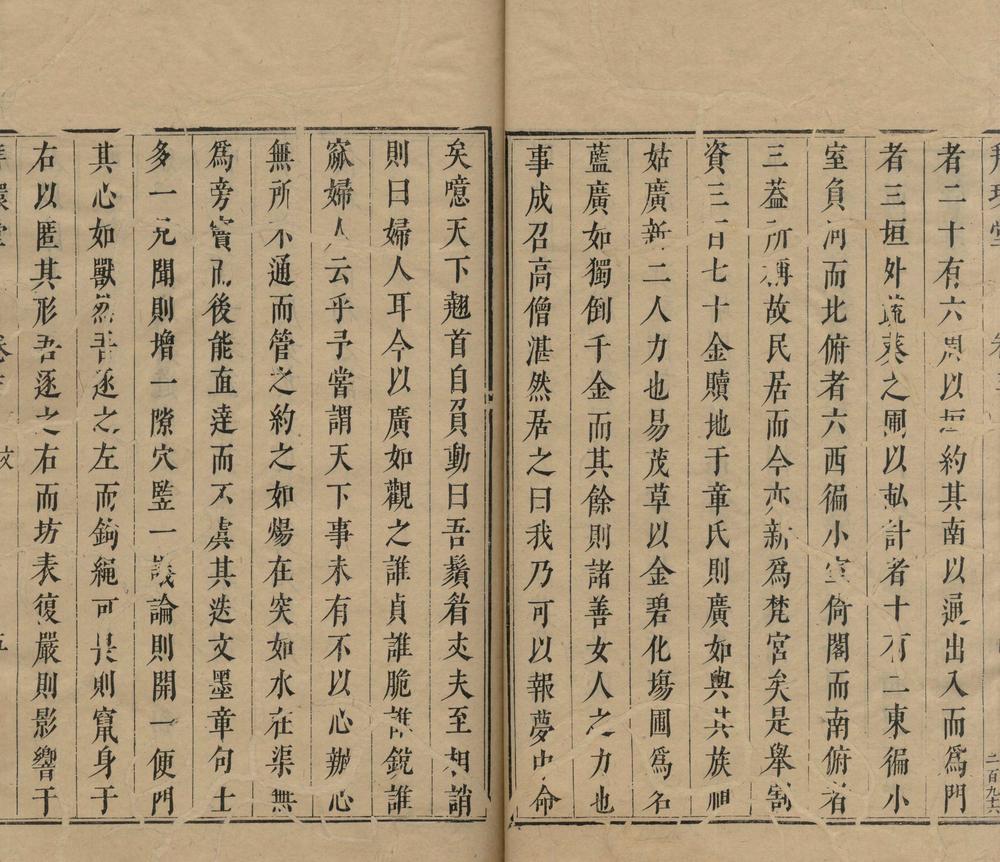 者二十有六周以垣約其南以通出入而為門
者三垣外蔬菜之圃以畝計者十有二東徧小
室負河而北俯者六西徧小室倚閣而南俯者
三葢所慱故民居而今亦新為梵宮矣是舉割
資三百七十金贖地于章氏則廣如輿共族
姑廣新二人力也易茂草以金碧化塲圃為名
藍廣如獨倒千金而其餘則諸善女人之力也
事成召高僧湛然居之曰我乃可以報夢中命
矣噫天下翹首自負動曰吾鬚眉丈夫至相誚
則曰婦人耳今以廣如觀之誰貞誰脆誰銳誰
窳婦人云乎予嘗謂天下事未有不以心辦心
無所不通而管之約之如煬在突如水在渠無
為旁竇而後能直達而不虞其迭文墨章句士
多一見聞則增一隙穴監一議論則開一便門
其心如獸然吾逐之左而鉤繩可畏則竄身于
右以匿其形吾逐之右而坊表復嚴則影響于
五